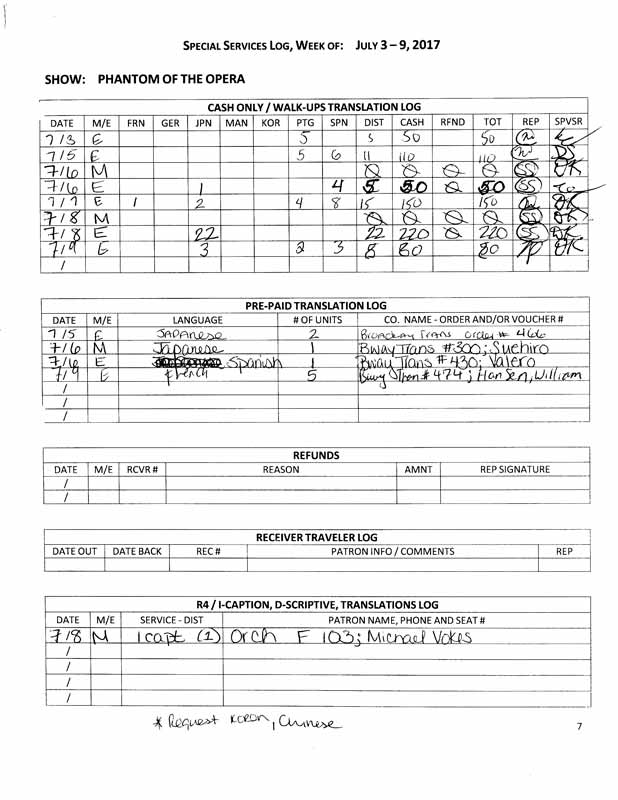 SPECIAL SERVICES LOG, WEEK OF: JULY 3 – 9, 2017
SHOW: PHANTOM OF THE OPERA
CASH ONLY / WALK-UPS TRANSLATION LOG
DATE M/E FRN GER JPN MAN KOR PTG SPN DIST CASH RFND TOT REP SPVSR
7/3 E 5 5 50 50
7/5 E 5 6 11 110 110 DS
7/6 M 0 0 0 0 SS DK
7/6 E 1 4 5 50 0 50 SS
7/7 E 1 2 4 8 15 150 150 DK
7/8 M 0 0 0 0 SS DK
7/8 E 22 22 220 0 220 SS DK
7/9 E 3 2 3 8 80 80 DK
/
PRE-PAID TRANSLATION LOG
DATE M/E LANGUAGE # OF UNITS CO. NAME - ORDER AND/OR VOUCHER #
7/5 E JAPANESE 2 Broadway Trans order # 466
7/6 M Japanese 1 Bway Trans #300; Suehiro
7/6 E Spanish 1 Bway Trans #430; Valero
7/9 E French 5 Bwy Tran # 474; Hansen, William
/
/
/
REFUNDS
DATE M/E RCVR # REASON AMNT REP SIGNATURE
/
/
RECEIVER TRAVELER LOG
DATE OUT DATE BACK REC # PATRON INFO / COMMENTS REP
R4 / I-CAPTION, D-SCRIPTIVE, TRANSLATIONS LOG
DATE M/E SERVICE - DIST PATRON NAME, PHONE AND SEAT #
7/8 M Icapt (1) Orch F 103; Michael Vokes
/
/
/
/
* Request Koren, Chinese
7